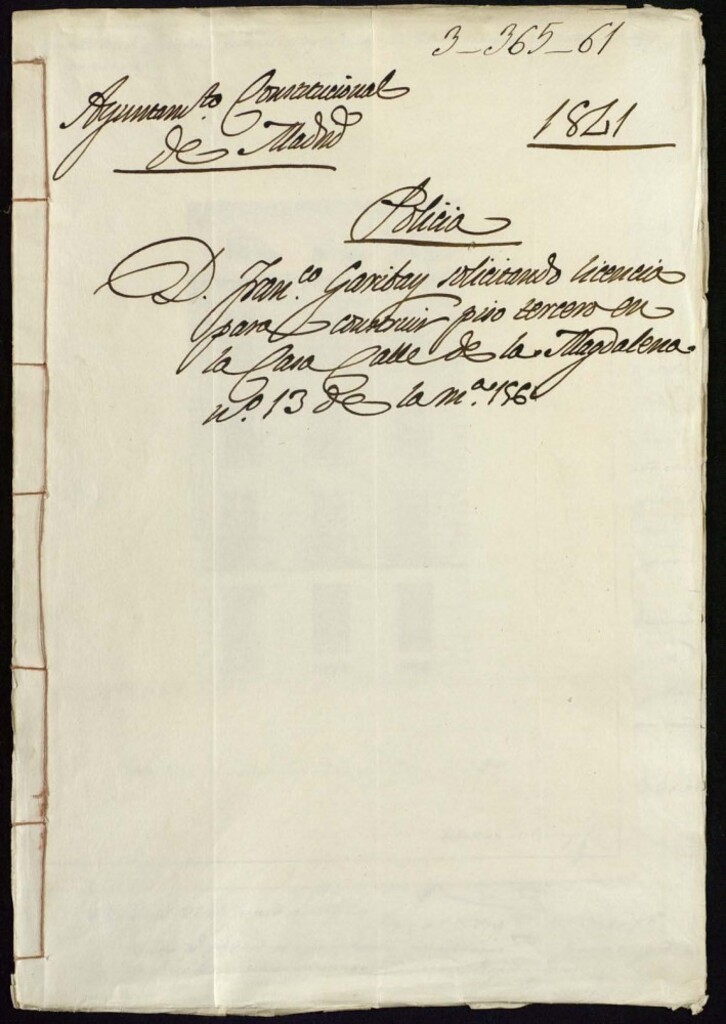 3-365-61
Ayuntam.to Constitucional
de Madrid
1841
Policia
D. Fran.co Garibay solicitando licencia
para construir piso tercero en
la Casa Calle de la Magdalena
n.o 13 de la m.a 156